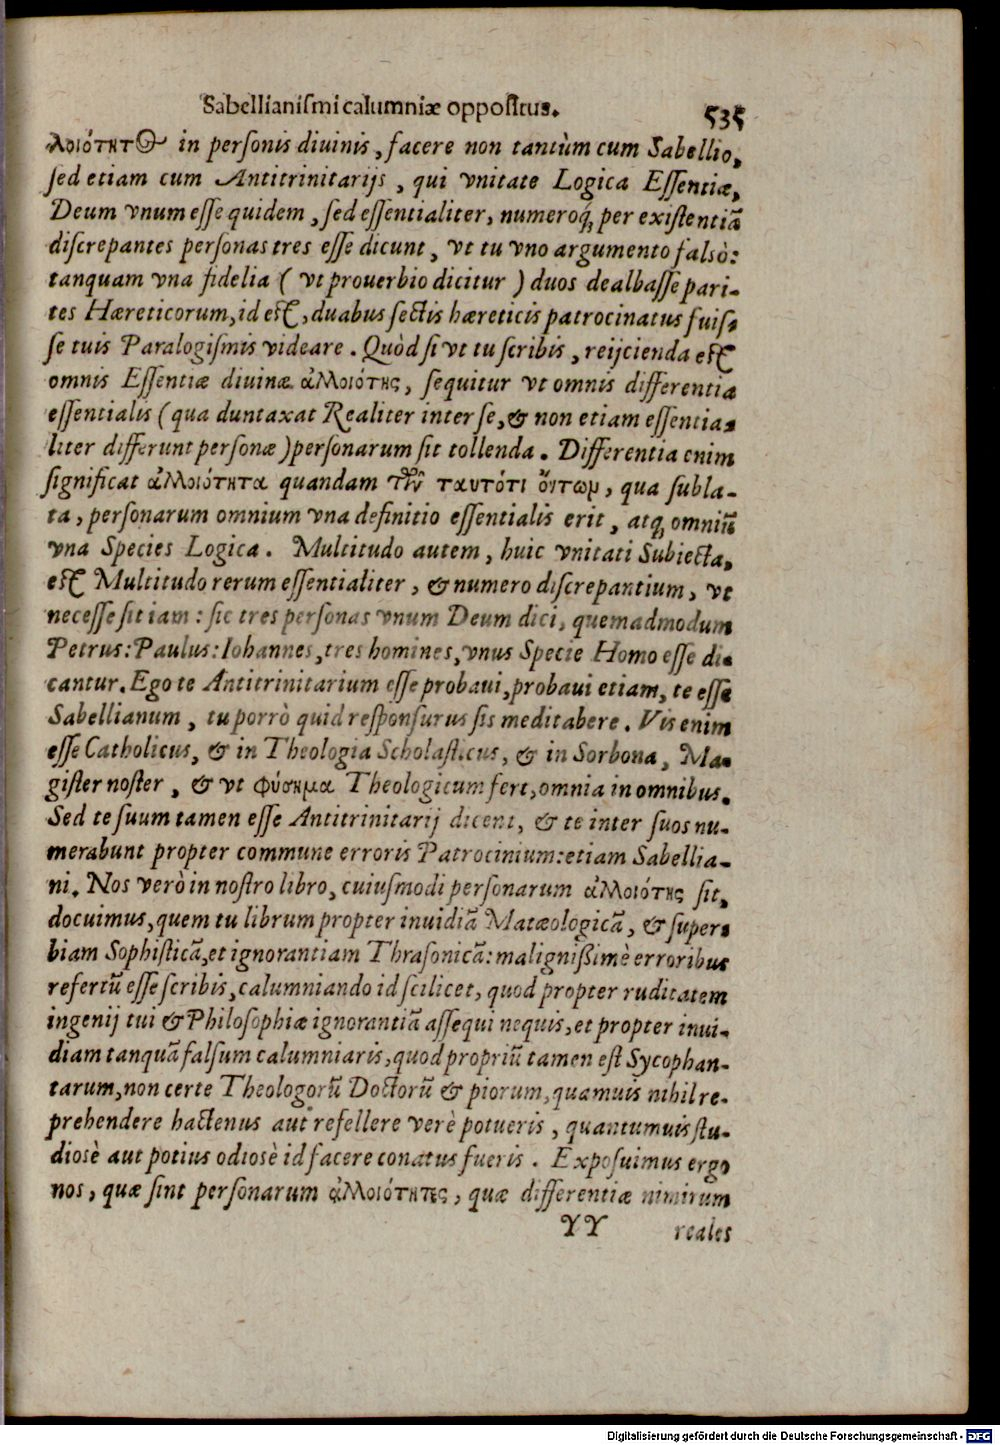 Sabellianiſmi calumniæ oppoſitus. 535
λοιότητ(Ο) in perſonis diuinis, facere non tantùm cum Sabellio,
ſed etiam cum Antitrinitarijs, qui vnitate Logica Eſſentiæ,
Deum vnum eſſe quidem, ſed eſſentialiter, numeroq́; per exiſtentiā
diſcrepantes perſonas tres eſſe dicunt, vt tu vno argumento falsò:
tanquam vna fidelia ( vt prouerbio dicitur ) duos dealbaſſe pari-
tes Hæreticorum, id eſt, duabus ſectis hæreticis patrocinatus fuiſ-
ſe tuis Paralogiſmis videare. Quòd ſi vt tu ſcribis, reijcienda eſt
omnis Eſſentiæ diuinæ ἀλλοιότης, ſequitur vt omnis differentia
eſſentialis (qua duntaxat Realiter inter ſe, & non etiam eſſentia-
liter differunt perſonæ) perſonarum ſit tollenda. Differentia enim
ſignificat ἀλλοιότητα quandam τῶν ταυτότι ὄντων, qua ſubla-
ta, perſonarum omnium vna definitio eſſentialis erit, atq; omniũ
vna Species Logica. Multitudo autem, huic vnitati Subiecta,
eſt Multitudo rerum eſſentialiter, & numero diſcrepantium, vt
neceſſe ſit iam: ſic tres perſonas vnum Deum dici, quemadmodum
Petrus: Paulus: Iohannes, tres homines, vnus Specie Homo eſſe di-
cantur. Ego te Antitrinitarium eſſe probaui, probaui etiam, te eſſe
Sabellianum, tu porrò quid reſponſurus ſis meditabere. Vis enim
eſſe Catholicus, & in Theologia Scholaſticus, & in Sorbona, Ma-
giſter noſter, & vt φύσημα Theologicum fert, omnia in omnibus.
Sed te ſuum tamen eſſe Antitrinitarij dicent, & te inter ſuos nu-
merabunt propter commune erroris Patrocinium: etiam Sabellia-
ni. Nos verò in noſtro libro, cuiuſmodi perſonarum ἀλλοιότης ſit,
docuimus, quem tu librum propter inuidiā Matæologicā, & ſuper-
biam Sophiſticā, et ignorantiam Thraſonicā: maligniſſimè erroribus
refertũ eſſe ſcribis, calumniando id ſcilicet, quod propter ruditatem
ingenij tui & Philoſophiæ ignorantiā aſſequi nequis, et propter inui-
diam tanquā falſum calumniaris, quod propriũ tamen eſt Sycophan-
tarum, non certe Theologorũ Doctorũ & piorum, quamuis nihil re-
prehendere hactenus aut refellere verè potueris, quantumuis ſtu-
diosè aut potius odiosè id facere conatus fueris. Expoſuimus ergo
nos, quæ ſint perſonarum ἀλλοιότητες, quæ differentiæ nimirum
YY reales
Digitalisierung gefördert durch die Deutsche Forschungsgemeinschaft - DFG